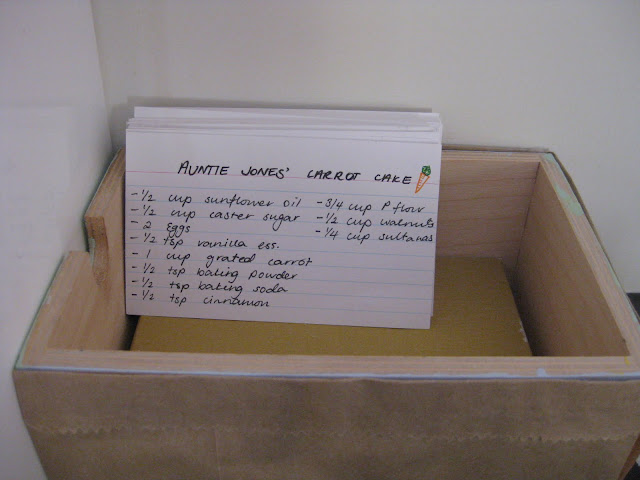 AUNTIE JONES' CARROT CAKE
- 1/2 cup sunflower oil
- 1/2 cup caster sugar
- 2 Eggs
- 1/2 tsp vanilla ess.
- 1 cup grated carrot
- 1/2 tsp baking powder
- 1/2 tsp baking soda
- 1/2 tsp cinnamon
- 3/4 cup P flour
- 1/2 cup walnuts
- 1/4 cup sultanas